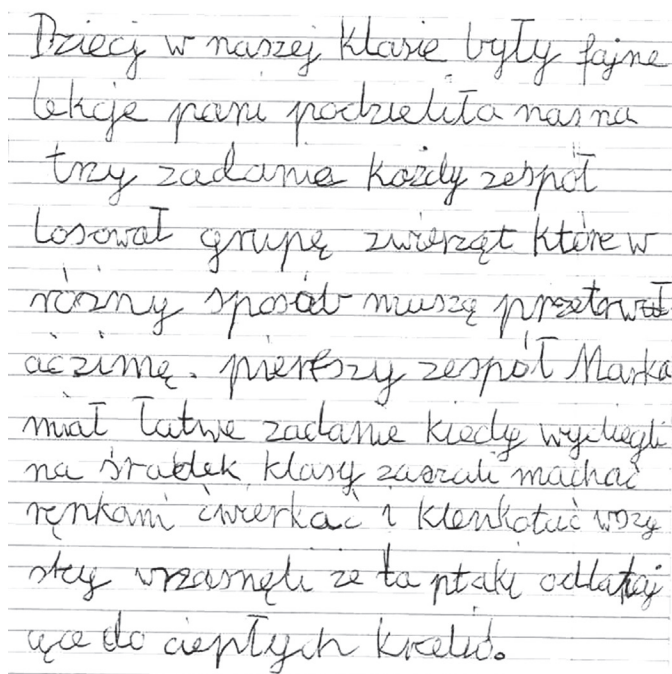 Dzieci w naszej klasie były fajne
lekcje pani podzieliła nas na
trzy zadania każdy zespół
losował grupę zwierząt które w
różny sposób muszą przetrw
ać zimę. pierszy zespół Marka
miał łatwe zadanie kiedy wybiegli
na środek klasy zaczali machać
ręnkami ćwierkać i klenkotać wszy
stcy wrzasnęli że to ptaki odlatuj
ące do ciepłych kraluć.